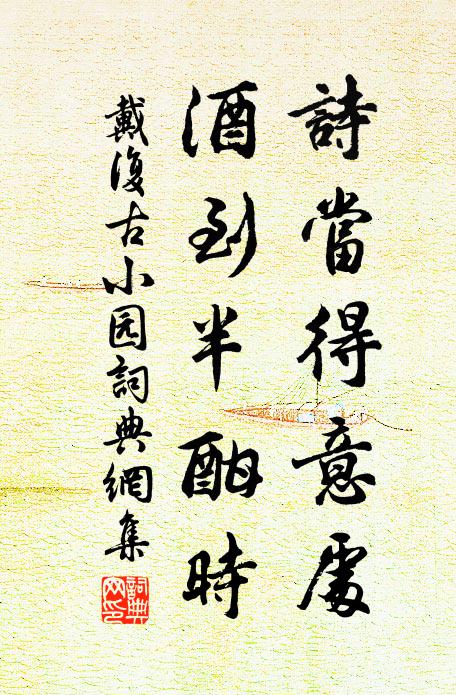 詩當得意處
酒到半酣時
戴復古小园詞典網集
詞典网印